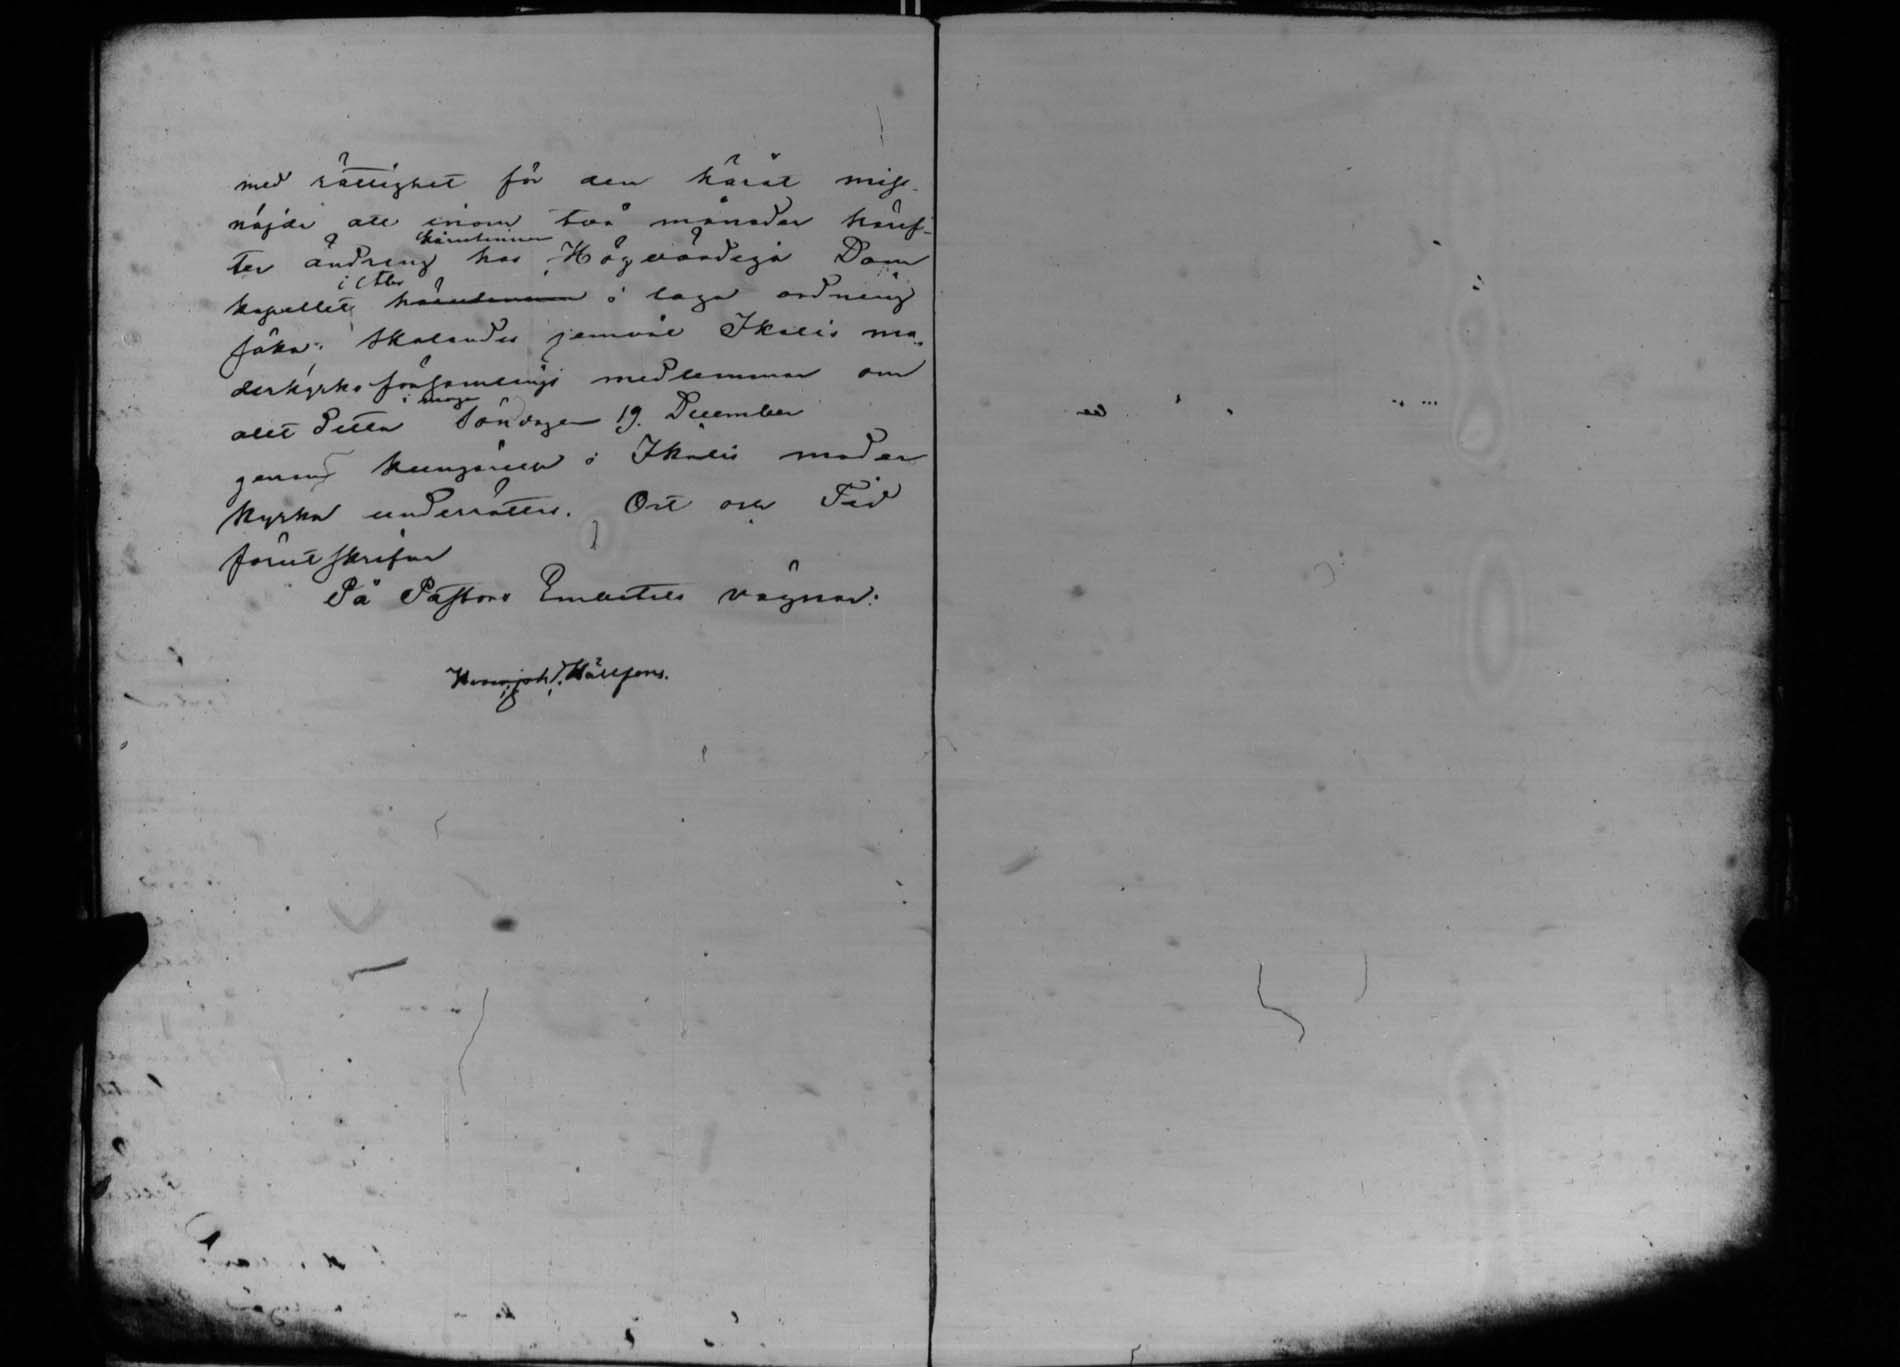 med rättighet för den häråt miss-
nöjde att inom två månader häref-
ter ändring hos härutinnan Högvördiga Dom
kapellet i Åbo härutinnan i laga ordning
söka; skolandes jemväl Ikalis mo-
derkyrko församlings medlemmar om
allt detta i morgon Söndagen 19. December
genom kungörelse i Ikalis moder
kyrka underrättas. Ort och Tid
förutskrifne
På Pastors Embetets vägnar: